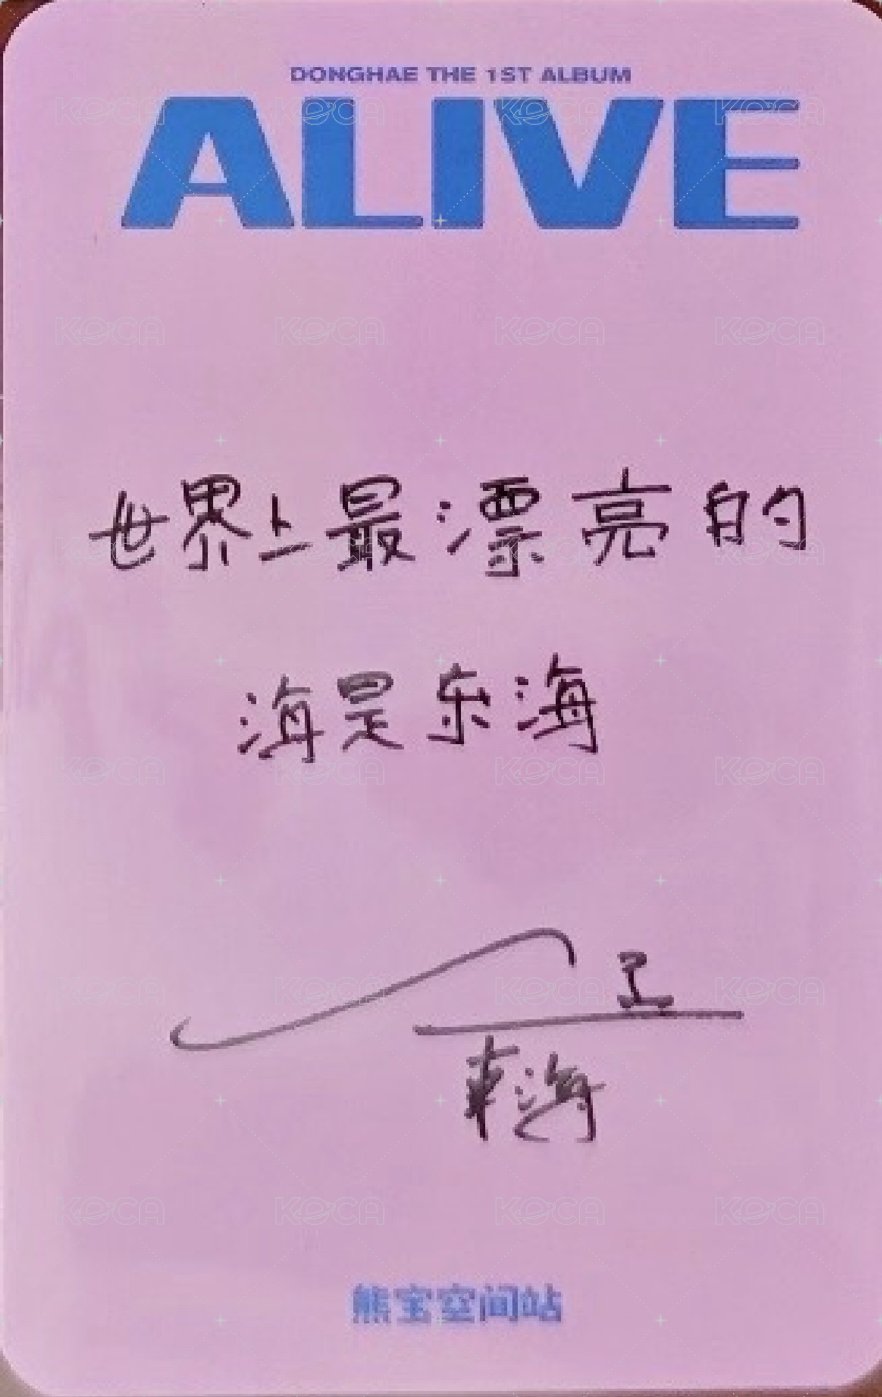 DONGHAE THE 1ST ALBUM
ALIVE
世界上最漂亮的
海是东海
东海
熊宝空间站
KOCA